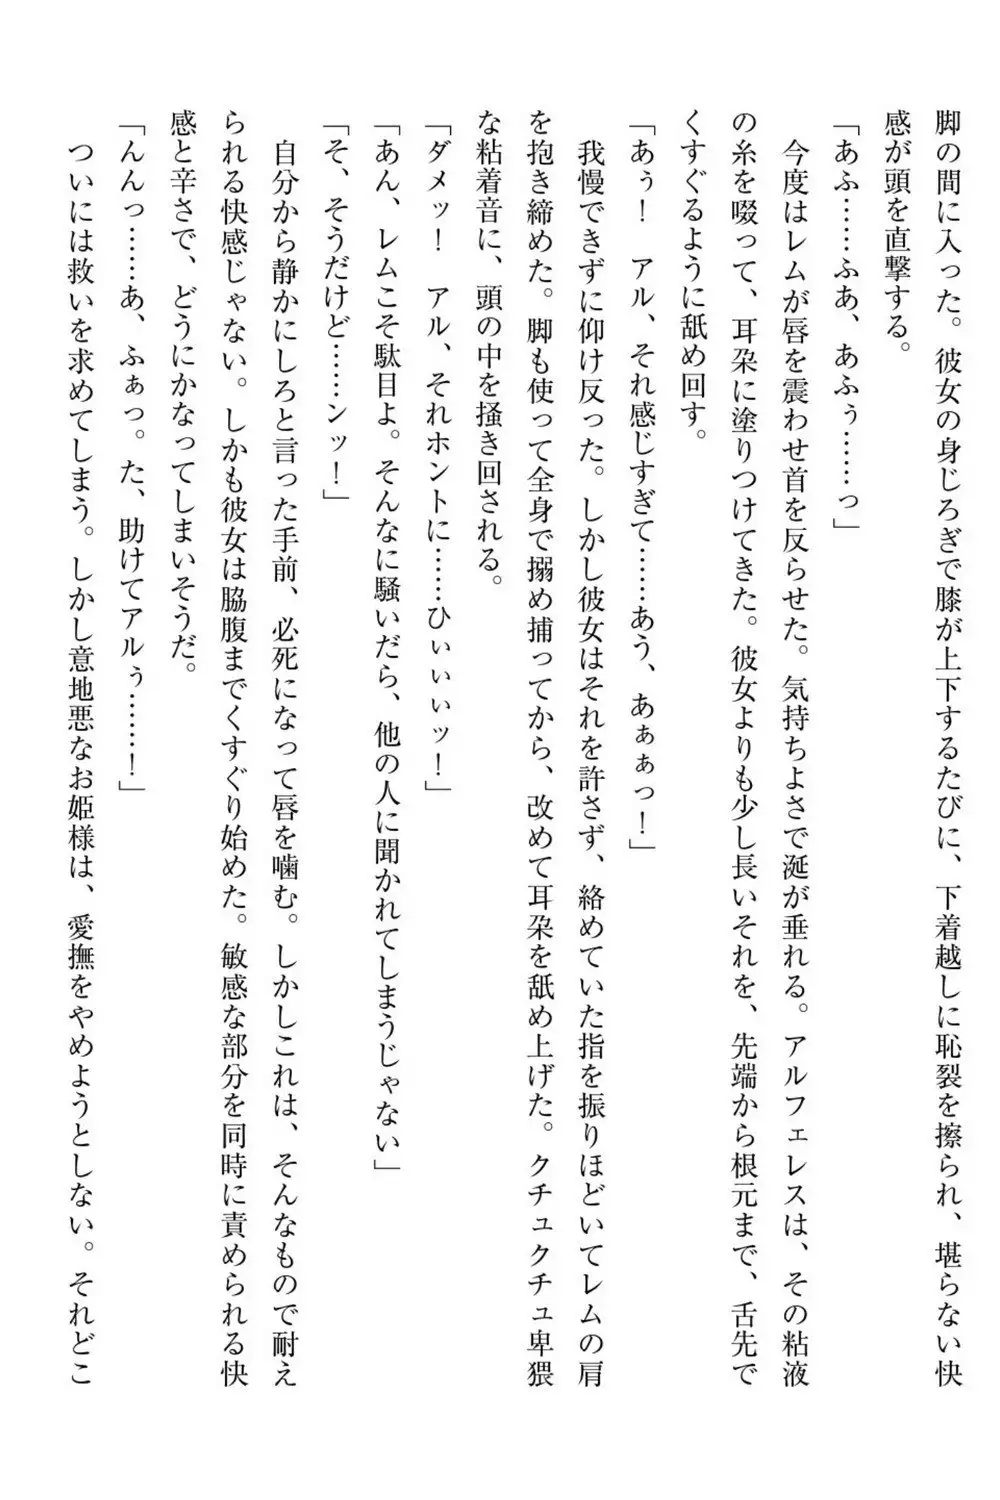 脚の間に入った。彼女の身じろぎで膝が上下するたびに、下着越しに恥裂を擦られ、堪らない快
感が頭を直撃する。
「あふ……ふあ、あふぅ……っ」
　今度はレムが唇を震わせ首を反らせた。気持ちよさで涎が垂れる。アルフェレスは、その粘液
の糸を啜って、耳朶に塗りつけてきた。彼女よりも少し長いそれを、先端から根元まで、舌先で
くすぐるように舐め回す。
「あぅ！　アル、それ感じすぎて……あう、あぁぁっ！」
　我慢できずに仰け反った。しかし彼女はそれを許さず、絡めていた指を振りほどいてレムの肩
を抱き締めた。脚も使って全身で搦め捕ってから、改めて耳朶を舐め上げた。クチュクチュ卑猥
な粘着音に、頭の中を掻き回される。
「ダメッ！　アル、それホントに……ひぃぃぃッ！」
「あん、レムこそ駄目よ。そんなに騒いだら、他の人に聞かれてしまうじゃない」
「そ、そうだけど……ンッ！」
　自分から静かにしろと言った手前、必死になって唇を噛む。しかしこれは、そんなもので耐え
られる快感じゃない。しかも彼女は脇腹までくすぐり始めた。敏感な部分を同時に責められる快
感と辛さで、どうにかなってしまいそうだ。
「んんっ……あ、ふぁっ。た、助けてアルぅ……！」
　ついには救いを求めてしまう。しかし意地悪なお姫様は、愛撫をやめようとしない。それどこ